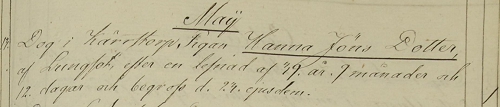 Maÿ
17. Dog i Kärrstorp, Pigan Hanna Jöns Dotter,
af Lungsot, efter en lefnad af 39. år. 9 månader och
12. dagar och begrofs d. 23. ejusdem.